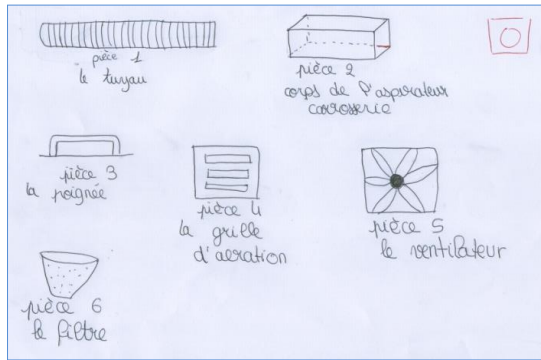 pièce 1
le tuyau
pièce 2
corps de l'aspirateur
carrosserie
pièce 3
la poignée
pièce 4
la grille
d'aeration
pièce 5
le ventilateur
pièce 6
le filtre